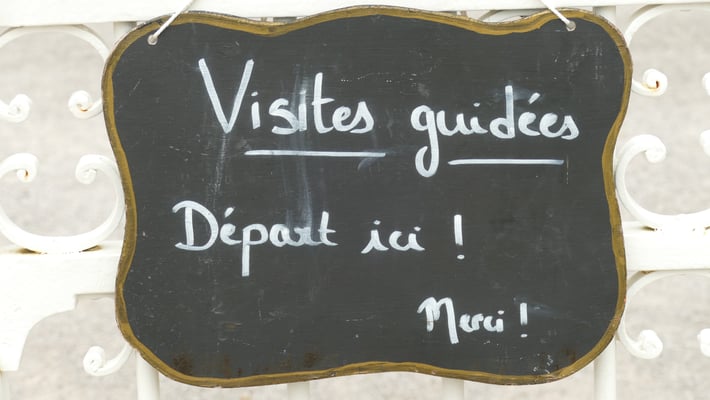 Visites guidées
Départ ici !
Merci !